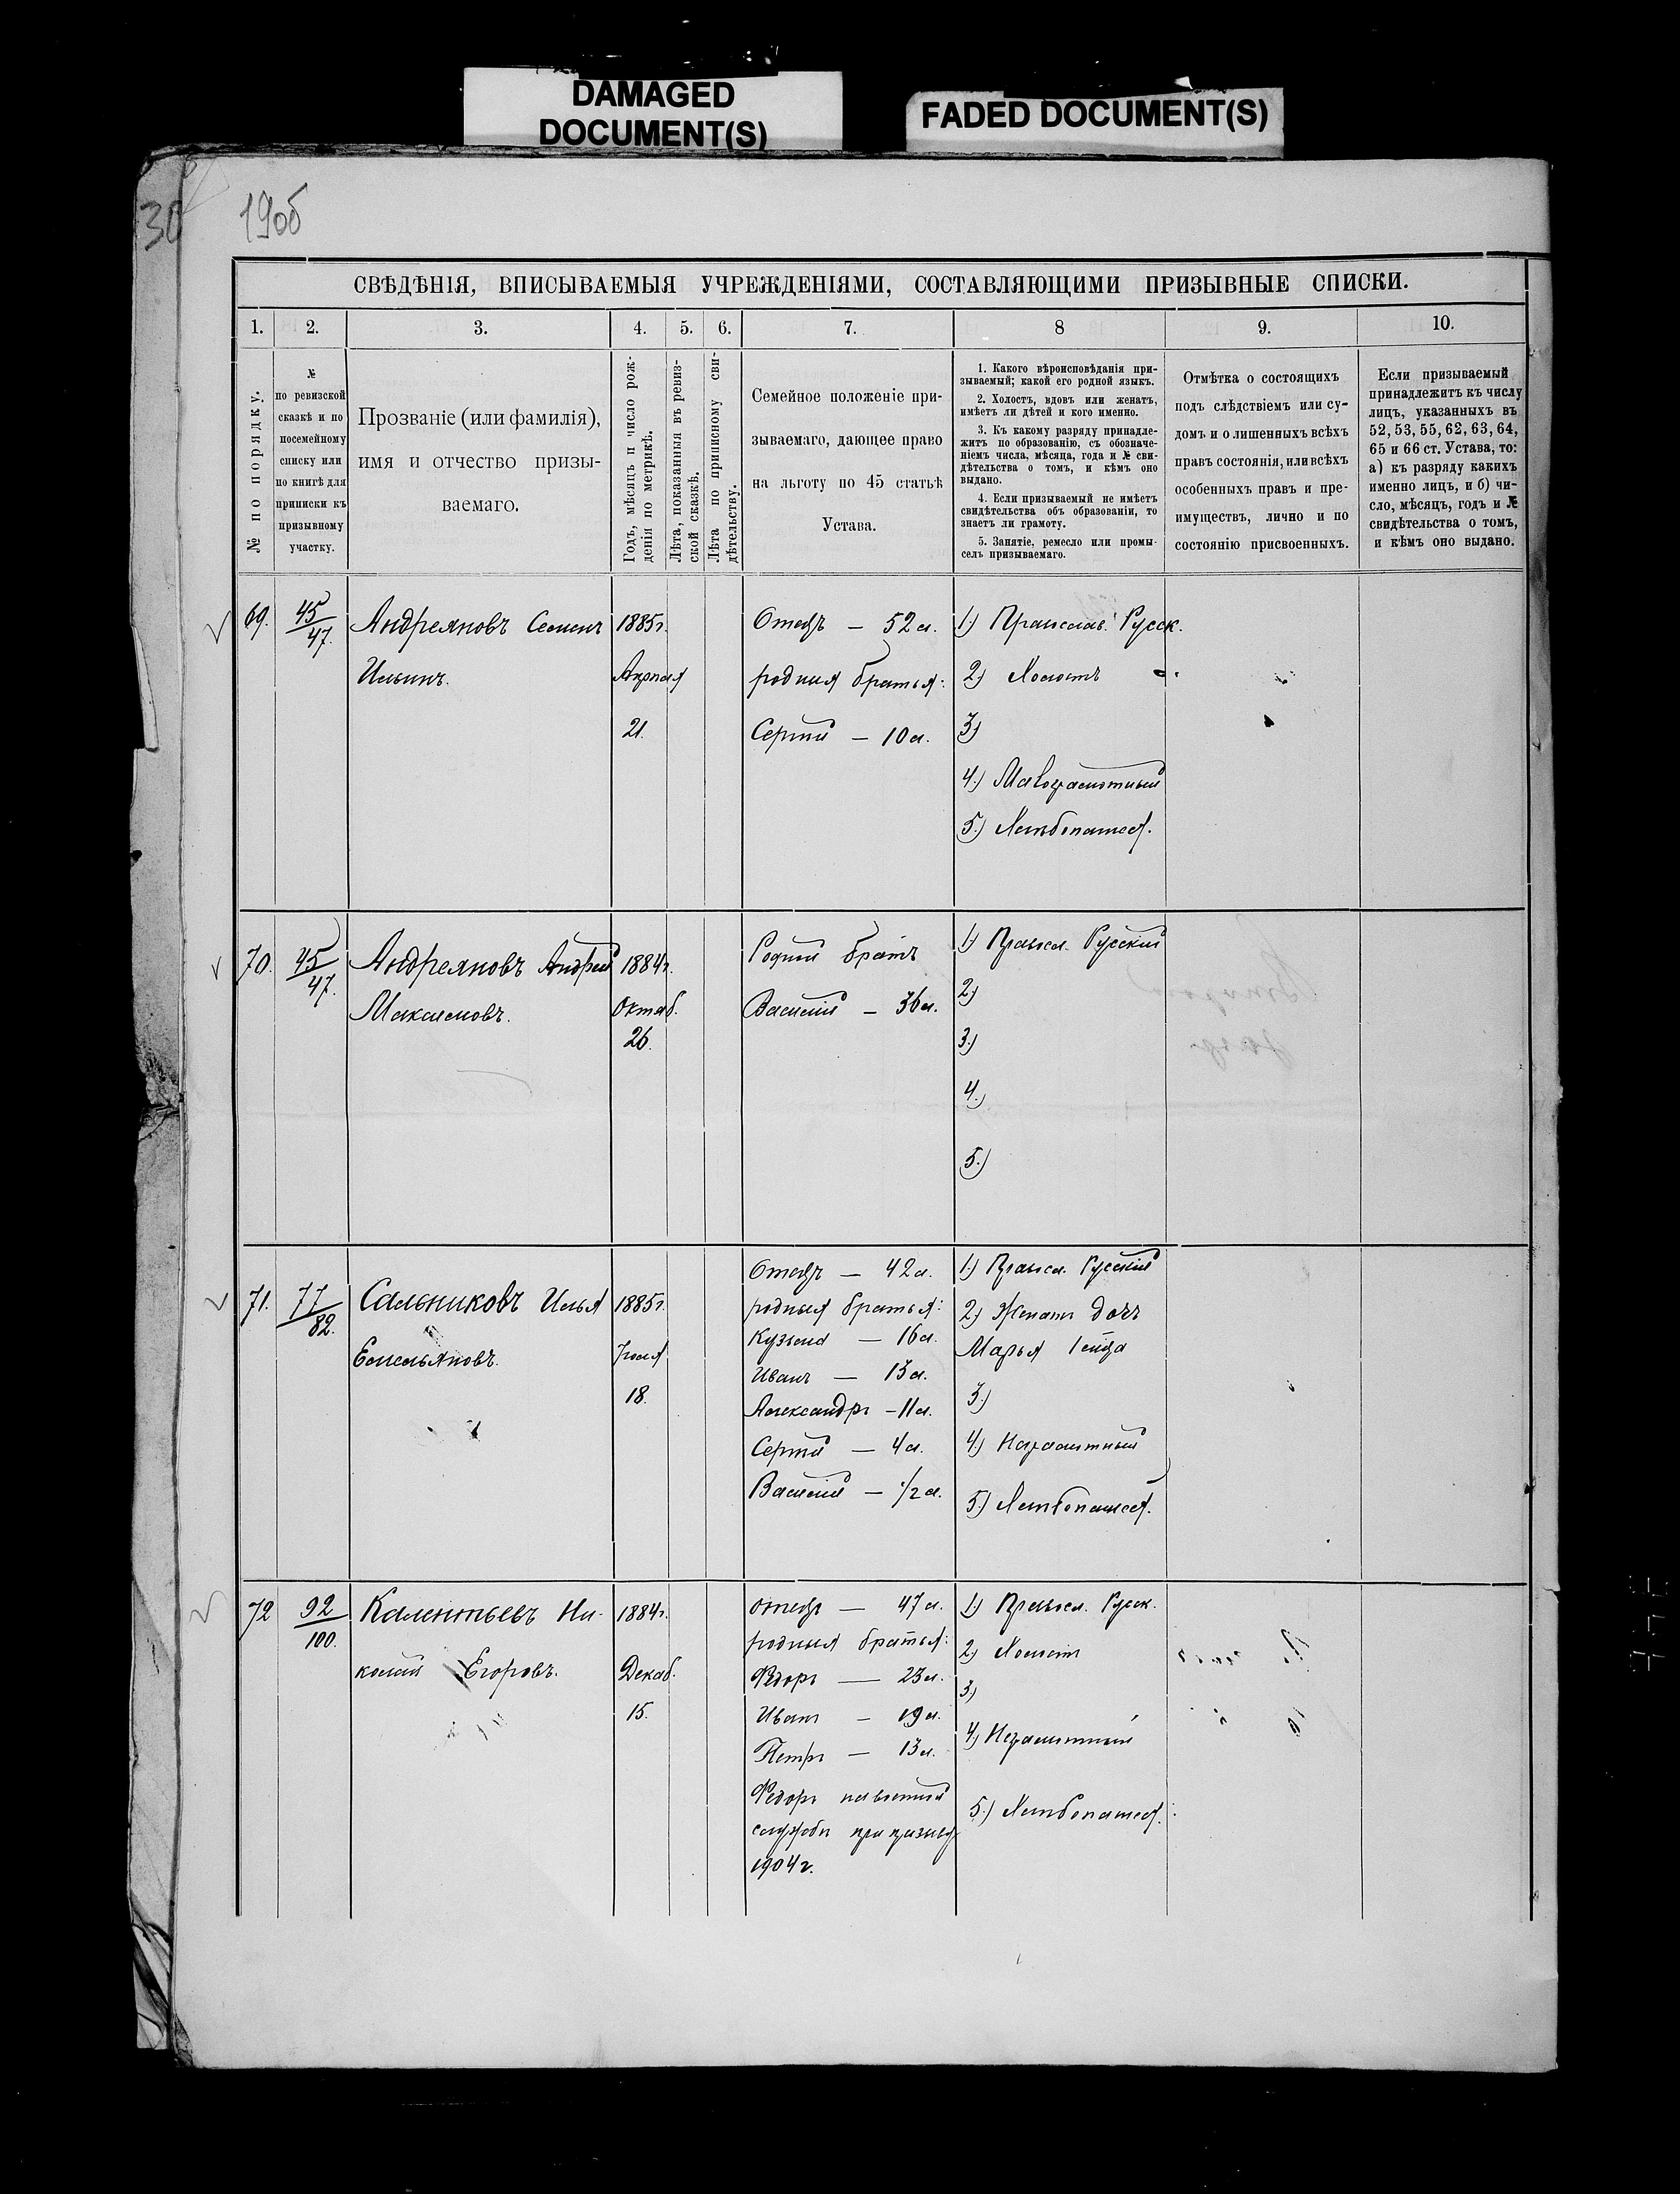 DAMAGED
DOCUMENT(S)
FADED DOCUMENT(S)
30
1906
СВѢДѢНІЯ, ВПИСЫВАЕМЫЯ УЧРЕЖДЕНІЯМИ, СОСТАВЛЯЮЩИМИ ПРИЗЫВНЫЕ СПИСКИ.
1. 2. 3. 4. 5. 6. 7. 8 9. 10.
№ по порядку.
№
по ревизской
сказкѣ и по
посемейному
списку или
по книгѣ для
приписки къ
призывному
участку.
Прозваніе (или фамилія),
имя и отчество призы-
ваемаго.
Годъ, мѣсяцъ и число рож-
денія по метрикѣ.
Лѣта, показанныя въ ревиз-
ской сказкѣ.
Лѣта по приписному сви-
дѣтельству.
Семейное положеніе при-
зываемаго, дающее право
на льготу по 45 статьѣ
Устава.
1. Какого вѣроисповѣданія при-
зываемый; какой его родной языкъ.
2. Холостъ, вдовъ или женатъ,
имѣетъ ли дѣтей и кого именно.
3. Къ какому разряду принадле-
житъ по образованію, съ обозначе-
ніемъ числа, мѣсяца, года и № сви-
дѣтельства о томъ, и кѣмъ оно
выдано.
4. Если призываемый не имѣетъ
свидѣтельства объ образованіи, то
знаетъ ли грамоту.
5. Занятіе, ремесло или промы-
селъ призываемаго.
Отмѣтка о состоящихъ
подъ слѣдствіемъ или су-
домъ и о лишенныхъ всѣхъ
правъ состоянія, или всѣхъ
особенныхъ правъ и пре-
имуществъ, лично и по
состоянію присвоенныхъ.
Если призываемый
принадлежитъ къ числу
лицъ, указанныхъ въ
52, 53, 55, 62, 63, 64,
65 и 66 ст. Устава, то:
а) къ разряду какихъ
именно лицъ, и б) чи-
сло, мѣсяцъ, годъ и №
свидѣтельства о томъ,
и кѣмъ оно выдано.
69.
45/47.
Андреяновъ Семенъ
Ильинъ.
1885г.
Апрѣля
21.
Отецъ — 52 л.
родныя братья:
Сергѣй — 10 л.
1.) Православ. Русск.
2.) Холостъ
3.)
4.) Малограмотный
5.) Хлѣбопашед.
70.
45/47.
Андреяновъ Андрей
Максимовъ.
1884г.
Октяб.
26.
Родной братъ
Василій — 36 л.
1.) Правосл. Русскій
2.)
3.)
4.)
5.)
71.
77/82.
Сальниковъ Илья
Емельяновъ.
1885г.
Іюля
18.
Отецъ — 42 л.
родныя братья:
Кузьма — 16 л.
Иванъ — 13 л.
Александръ — 11 л.
Сергѣй — 4 л.
Василій — 1/2 л.
1.) Правосл. Русскій
2.) Женатъ дочь
Марья 1 года
3.)
4.) Неграмотный
5.) Хлѣбопашед.
72
92/100.
Калентьевъ Ни-
колай Егоровъ.
1884г.
Декаб.
15.
отецъ — 47 л.
родныя братья:
Ѳедоръ — 23 л.
Иванъ — 19 л.
Петръ — 13 л.
Ѳедоръ на военной
службѣ при призывѣ
1904 г.
1.) Правосл. Русск.
2.) Холостъ
3.)
4.) Неграмотный
5.) Хлѣбопашед.